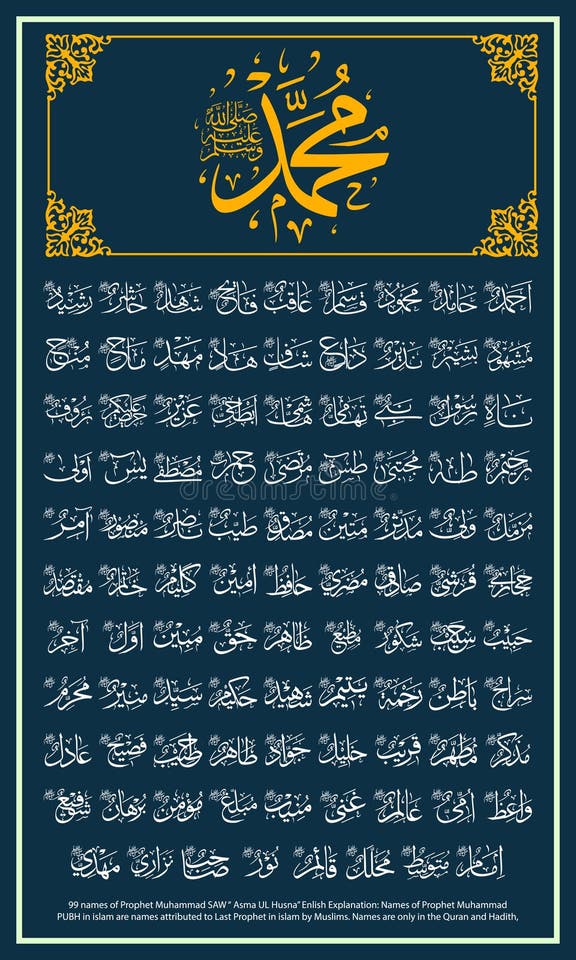 محمد
صلى الله عليه وسلم
أحمد حامد محمود قاسم عاقب فاتح شاهد حاشر رشيد
مشهود بشير نذير داع شاف هاد مهد ماح منج
ناه رسول نبي تهامي هاشمي أبطحي عزيز حريص عليكم رءوف
رحيم طه مجتبى طس مرتضى حم مصطفى يس أولى
مزمل ولي مدثر متين مصدق طيب ناصر منصور آمر
حجازي قرشي مضري حافظ أمين كليم خاتم مقتصد
حبيب شكور مطيع ظاهر حق مبين أول آخر
سراج باطن رحمة يتيم شهيد حكيم سيد منير محرم
مذكر مطهر قريب خليل جواد ظاهر خطيب فصيح عادل
واعظ أمي عالم غني منيب مبلغ مؤمن برهان شفيع
إمام متوسط محلل قائم نور صاحب نزاري مهدي
99 names of Prophet Muhammad SAW" Asma UL Husna"Enlish Explanation: Names of Prophet Muhammad
PUBH in islam are names attributed to Last Prophet in islam by Muslims. Names are only in the Quran and Hadith,
dreamstime.com